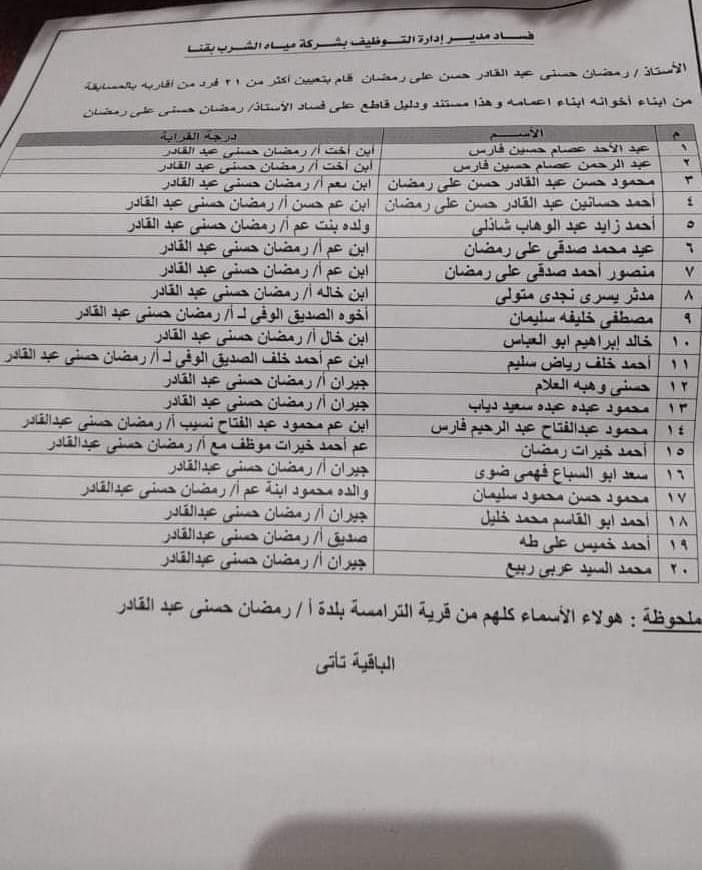 فساد مدير إدارة التوظيف بشركة مياه الشرب بقنا
الأستاذ / رمضان حسنى عبد القادر حسن على رمضان قام بتعيين أكثر من ٢١ فرد من أقاربه بالمسابقة
من ابناء أخوانه ابناء اعمامه وهذا مستند ودليل قاطع على فساد الأستاذ/ رمضان حسنى على رمضان
م الأســـم درجة القرابة
١ عبد الأحد عصام حسين فارس أبن أخت أ/ رمضان حسنى عبد القادر
٢ عبد الرحمن عصام حسين فارس ابن أخت أ/ رمضان حسنى عبد القادر
٣ محمود حسن عبد القادر حسن على رمضان ابن عم أ/ رمضان حسنى عبد القادر
٤ أحمد حسانين عبد القادر حسن على رمضان ابن عم حسن أ/ رمضان حسنى عبد القادر
٥ أحمد زايد عبد الوهاب شاذلى ولده بنت عم أ/ رمضان حسنى عبد القادر
٦ عيد محمد صدقى على رمضان ابن عم أ/ رمضان حسنى عبد القادر
٧ منصور أحمد صدقى على رمضان ابن عم أ/ رمضان حسنى عبد القادر
٨ مدثر يسرى نجدى متولى ابن خاله أ/ رمضان حسنى عبد القادر
٩ مصطفى خليفه سليمان أخوه الصديق الوفى لـ أ/ رمضان حسنى عبد القادر
١٠ خالد إبراهيم ابو العباس ابن خال أ/ رمضان حسنى عبد القادر
١١ أحمد خلف رياض سليم ابن عم أحمد خلف الصديق الوفى لـ أ/ رمضان حسنى عبد القادر
١٢ حسنى وهبه العلام جيران أ/ رمضان حسنى عبد القادر
١٣ محمود عبده عبده سعيد دياب جيران أ/ رمضان حسنى عبد القادر
١٤ محمود عبدالفتاح عبد الرحيم فارس ابن عم محمود عبد الفتاح نسيب أ/ رمضان حسنى عبدالقادر
١٥ أحمد خيرات رمضان عم أحمد خيرات موظف مع أ/ رمضان حسنى عبدالقادر
١٦ سعد ابو السباع فهمى ضوى جيران أ/ رمضان حسنى عبدالقادر
١٧ محمود حسن محمود سليمان والده محمود ابنة عم أ/ رمضان حسنى عبدالقادر
١٨ أحمد ابو القاسم محمد خليل جيران أ/ رمضان حسنى عبدالقادر
١٩ أحمد خميس على طه صديق أ/ رمضان حسنى عبدالقادر
٢٠ محمد السيد عربى ربيع جيران أ/ رمضان حسنى عبدالقادر
ملحوظة : هولاء الأسماء كلهم من قرية الترامسة بلدة أ / رمضان حسنى عبد القادر
الباقية تأتى